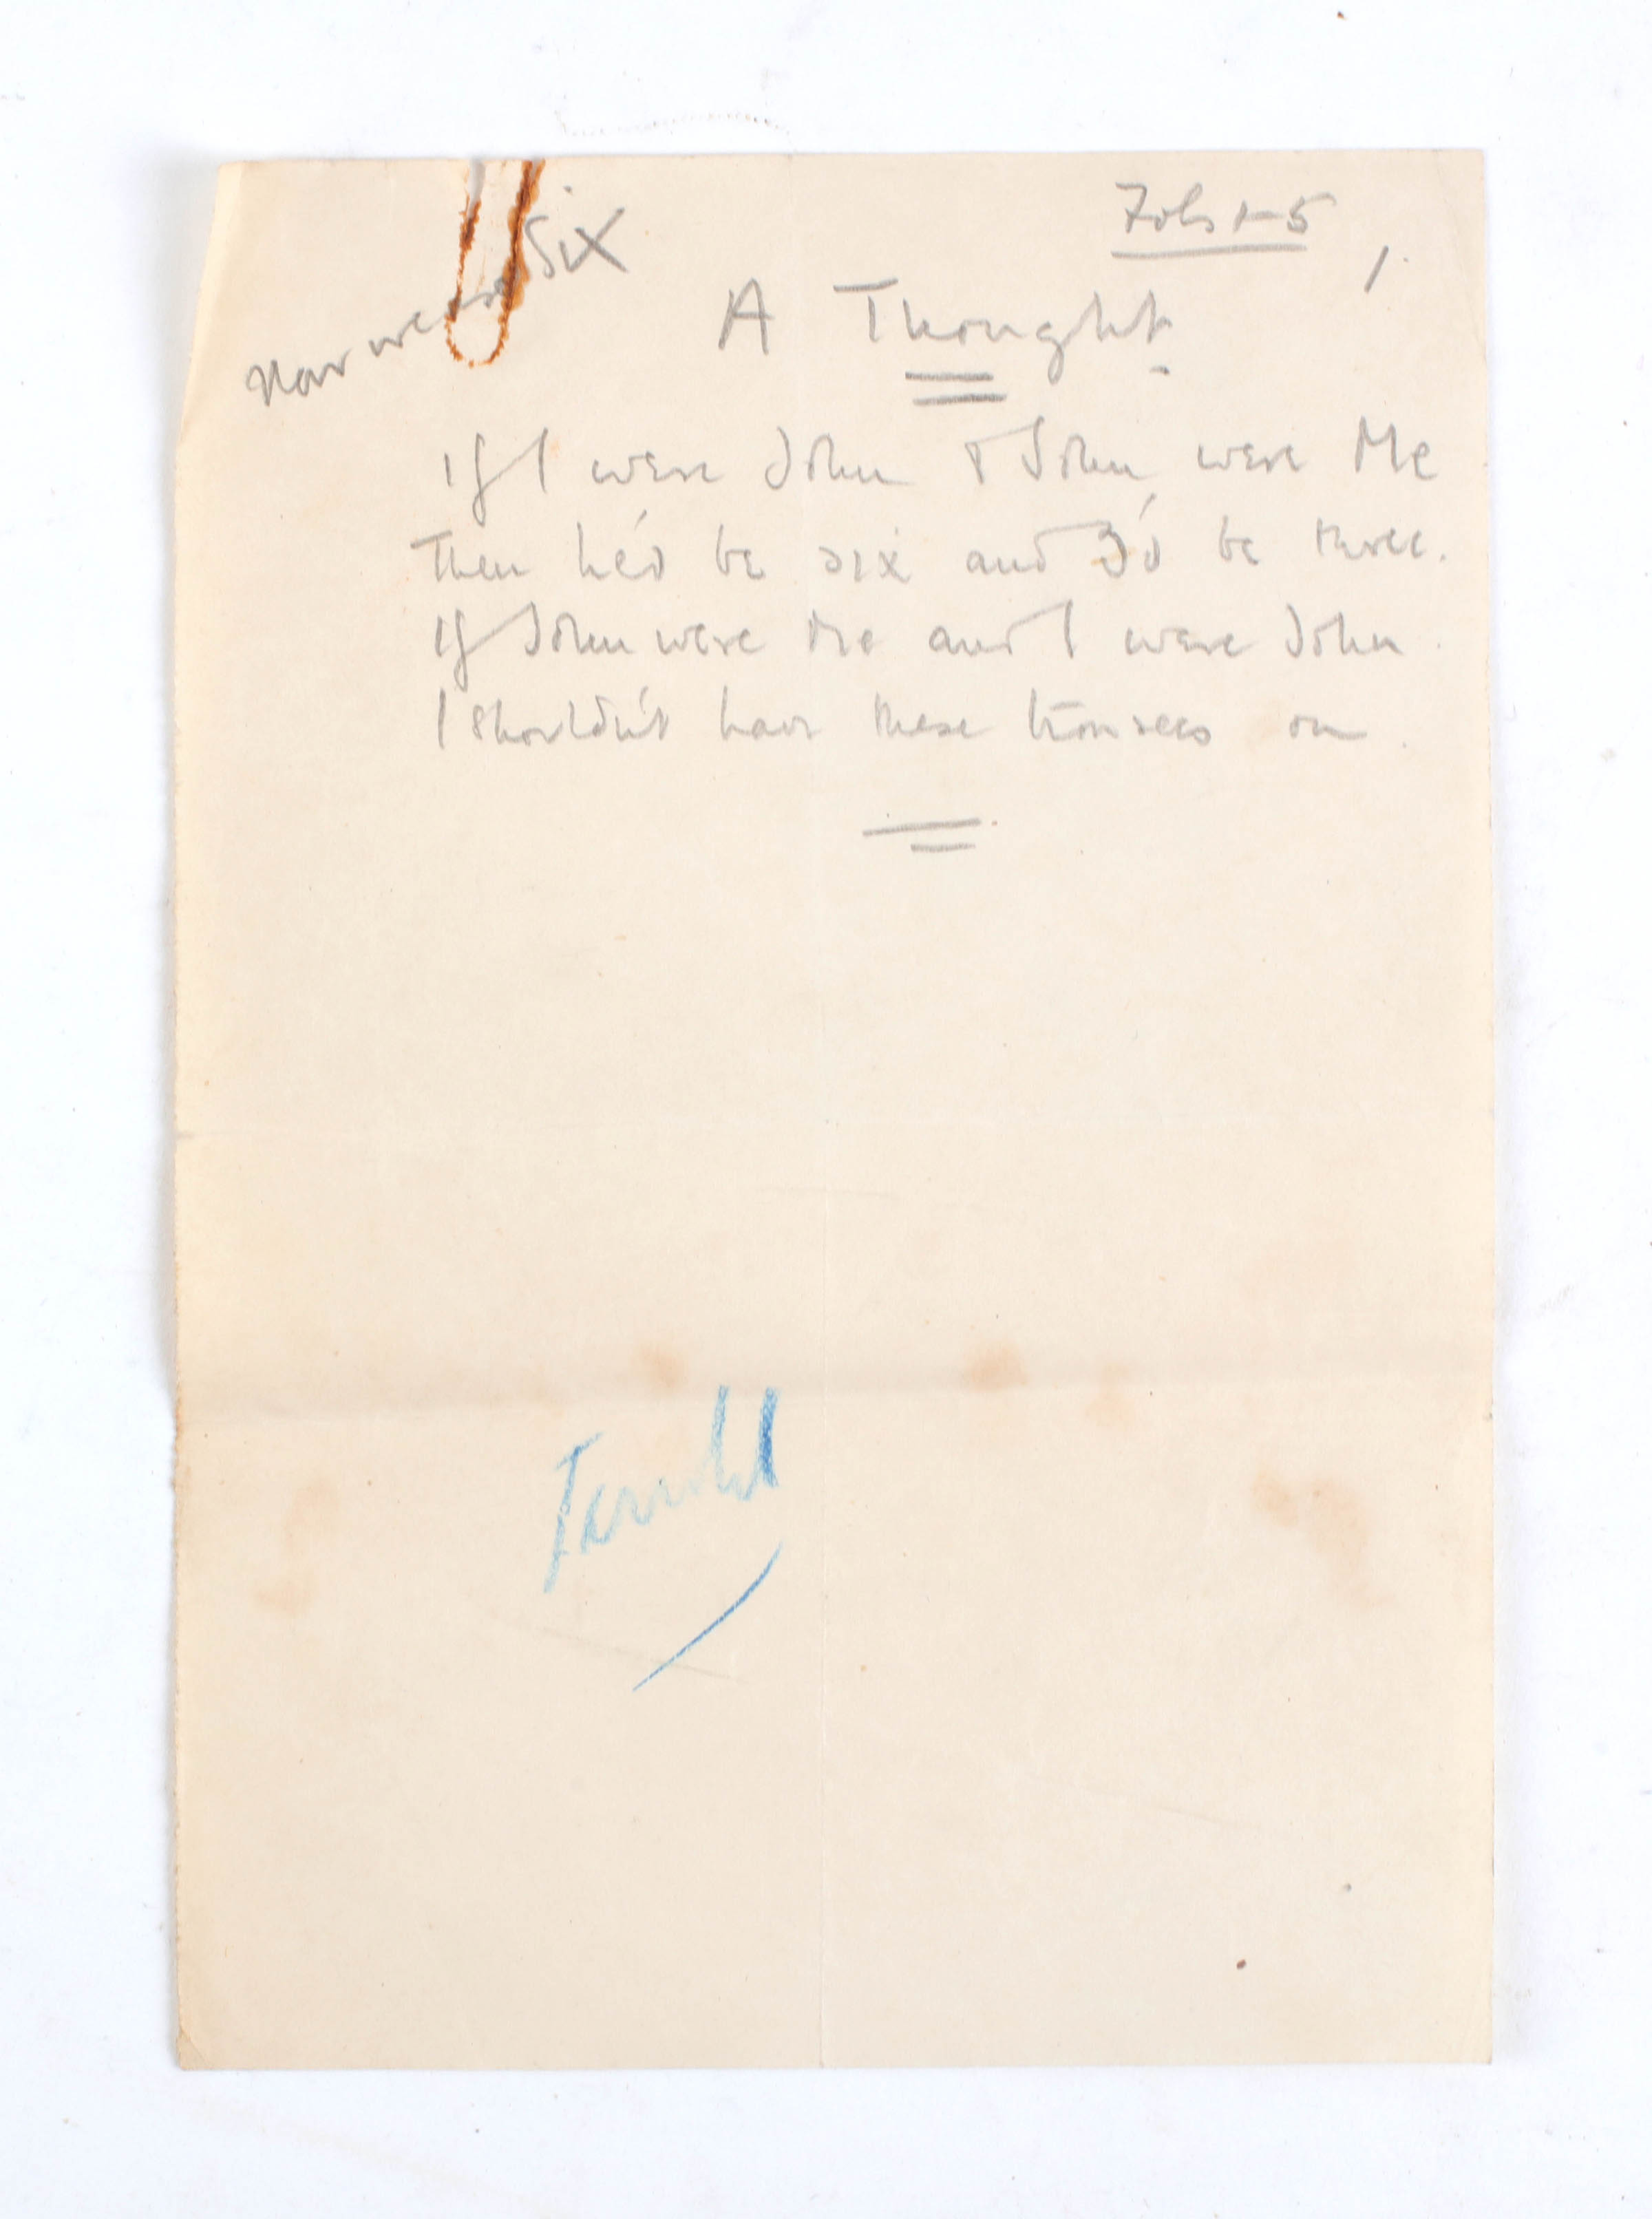 Fols 1-5
1.
Now we are Six
A Thought.
If I were John & John were Me
Then he'd be six and I'd be three.
If John were Me and I were John.
I shouldn't have these trousers on.